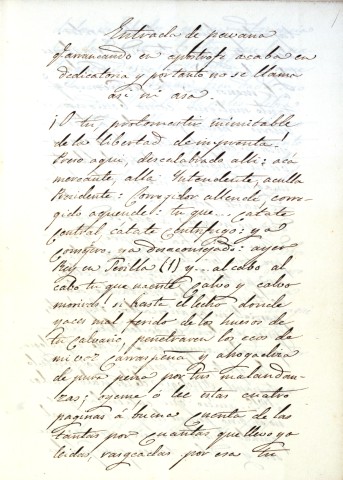 Entrada de pavana
q.e arrancando en epistrofe acaba en
dedicatoria y por tanto no se llama
asi ni asa.
¡O tu, protomartir inimitable
de la libertad de imprenta!
Preso aqui, descalabrado alli: aca
mercante, alla Yntendente, aculla
Presidente: Corregidor allende, corre-
gido aquende: tu que... catate
central, catate centrifugo: ya
Consejero, ya desaconsejado: ayer
Rey en Sevilla (1) y... al cabo al
cabo tu que naciste calvo y calvo
moriras! si hasta el lecho donde
yaces mal ferido de los huesos de
tu calvario, penetraren los ecos de
mi voz carraspeña y ahogadera
de pura pena por tus malandan-
zas; oyeme ó lee estas cuatro
paginas á buena cuenta de las
tantas por cuantas que llevo yo
leidas, rasgueadas por esa tu